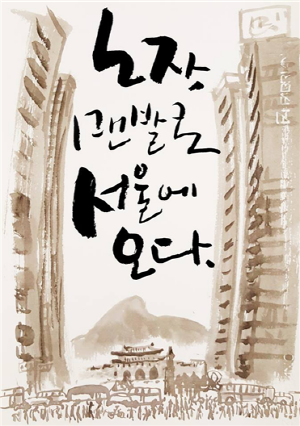 노장,
맨발로
서울에
오다.